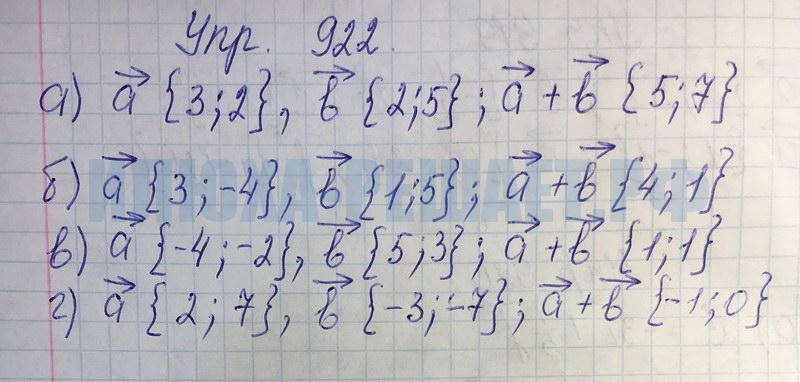 Упр. 922.
а) a⃗ {3;2}, b⃗ {2;5}; a⃗ + b⃗ {5;7}
б) a⃗ {3;-4}, b⃗ {1;5}; a⃗ + b⃗ {4;1}
в) a⃗ {-4;-2}, b⃗ {5;3}; a⃗ + b⃗ {1;1}
г) a⃗ {2;7}, b⃗ {-3;-7}; a⃗ + b⃗ {-1;0}